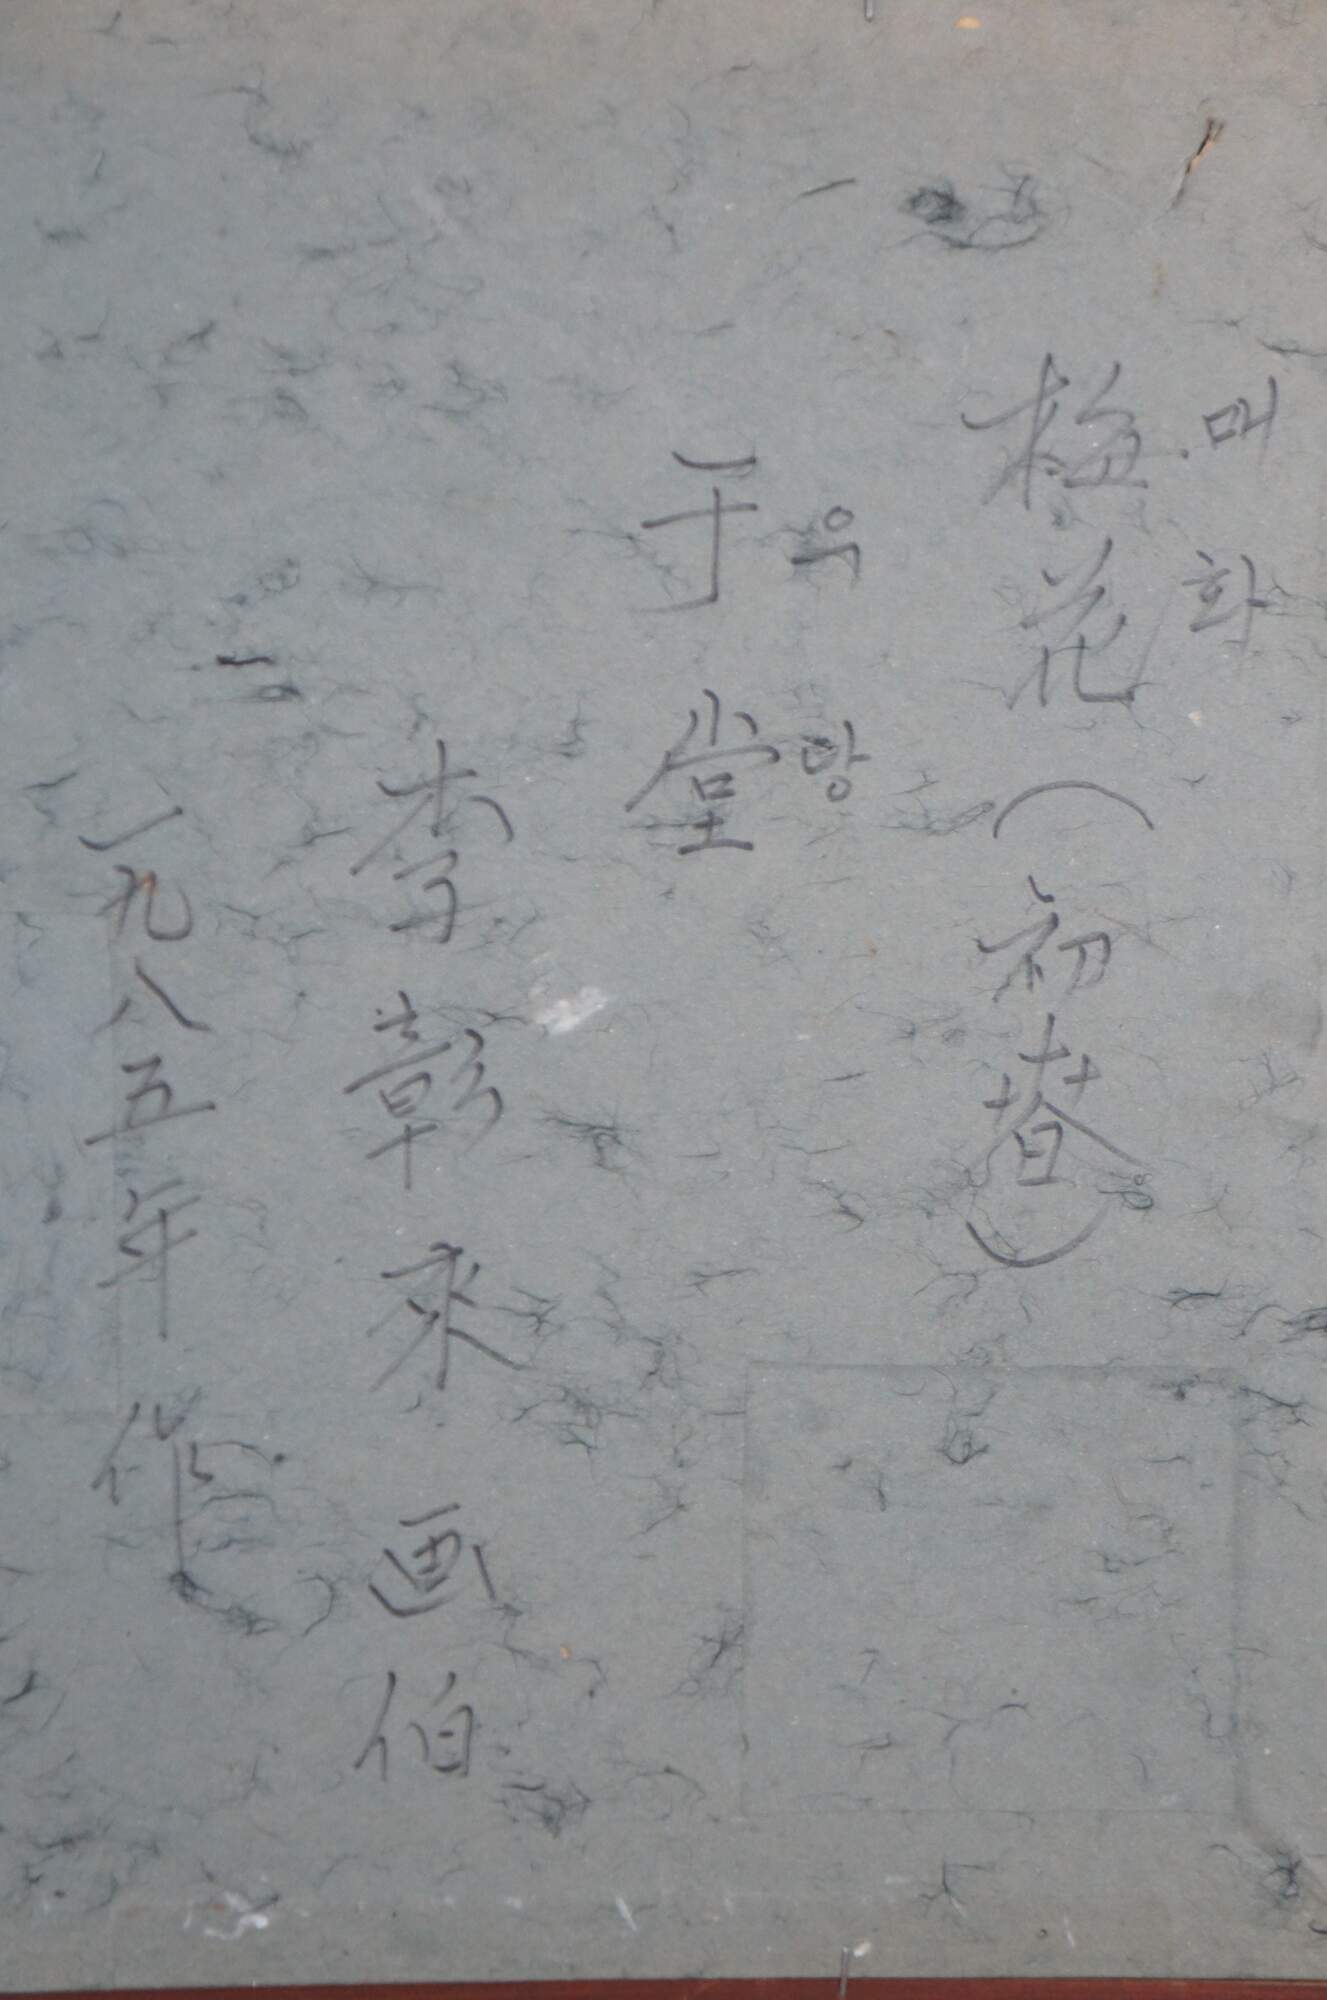 매화
梅花(初春)
우당
于堂
李彰来画伯
一九八五年作